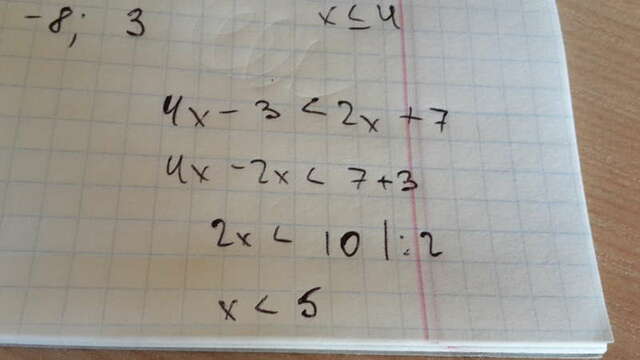 -8; 3
x ≤ 4
4x - 3 < 2x + 7
4x - 2x < 7 + 3
2x < 10 | : 2
x < 5